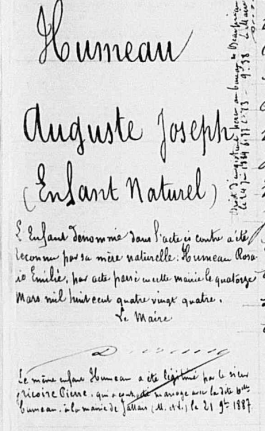 Humeau
Auguste Joseph
(Enfant Naturel)
L'Enfant dénommé dans l'acte ci contre a été
reconnu par sa mère naturelle: Humeau Rosa-
lie Emilie, par acte passé en cette mairie le quatorze
Mars mil huit cent quatre vingt quatre.
Le Maire
Le même enfant Humeau a été légitimé par le sieur
Pierre qui a contracté mariage avec la dite
Humeau, à la mairie de Jallais, (M. et L.) le 21 9bre 1887